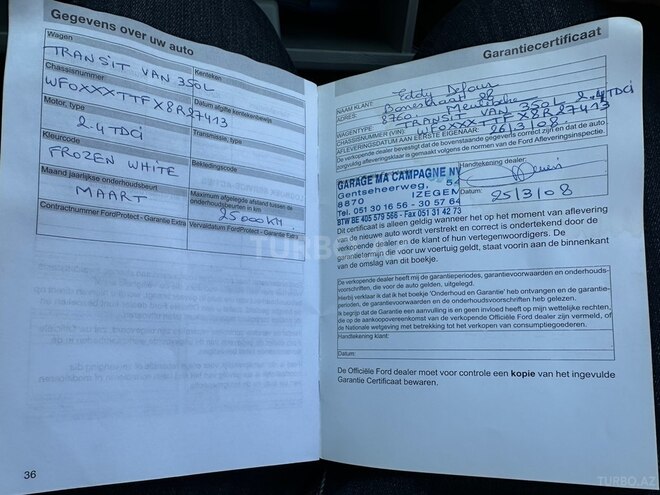 Gegevens over uw auto
Wagen
TRANSIT VAN 350L
Chassisnummer
Kenteken
WFOXXXTTFX8R27413
Datum afgifte kentekenbewijs
Motor, type
2.4 TDCi
Transmissie, type
Kleurcode
FROZEN WHITE
Bekledingscode
Maand jaarlijkse onderhoudsbeurt
MAART
Maximum afgelegde afstand tussen de onderhoudsbeurten in km
25000 KM
Contractnummer FordProtect - Garantie Extra
Vervaldatum FordProtect - Garantie Extra
36
Garantiecertificaat
NAAM KLANT: Eddy Defour
ADRES:
8760, Meulebeke
WAGENTYPE: TRANSIT VAN 350L 2.4TDCi
CHASSISNUMMER (VIN): WFOXXXTTFX8R27413
AFLEVERINGSDATUM AAN EERSTE EIGENAAR: 26/3/08
De verkopende dealer bevestigt dat de bovenstaande gegevens correct zijn en dat de auto
zorgvuldig afleveringsklaar is gemaakt volgens de normen van de Ford Afleveringsinspectie.
Handtekening dealer:
GARAGE MA CAMPAGNE NV
Gentseheerweg, 54
8870 IZEGEM
Datum: 25/3/08
Tel. 051 30 16 56 - 30 57 64
BTW BE 405 579 566 - Fax 051 31 42 73
Dit certificaat is alleen geldig wanneer het op het moment van aflevering
van de nieuwe auto wordt verstrekt en correct is ondertekend door de
verkopende dealer en de klant of hun vertegenwoordigers. De
garantietermijn die voor uw voertuig geldt, staat voorin aan de binnenkant
van de omslag van dit boekje.
De verkopende dealer heeft mij de garantieperiodes, garantievoorwaarden en onderhouds-
voorschriften, die voor de auto gelden, uitgelegd.
Hierbij verklaar ik dat ik het boekje 'Onderhoud en Garantie' heb ontvangen en de garantie-
periodes, de garantievoorwaarden en de onderhoudsvoorschriften heb gelezen.
Ik begrijp dat de Garantie een aanvulling is en geen invloed heeft op mijn wettelijke rechten,
die op de aankoopovereenkomst van de verkopende Officiële Ford dealer zijn vermeld, of
de Nationale wetgeving met betrekking tot het verkopen van consumptiegoederen.
Handtekening klant:
Datum:
De Officiële Ford dealer moet voor controle een kopie van het ingevulde
Garantie Certificaat bewaren.
TURBO.AZ
TURBO.AZ